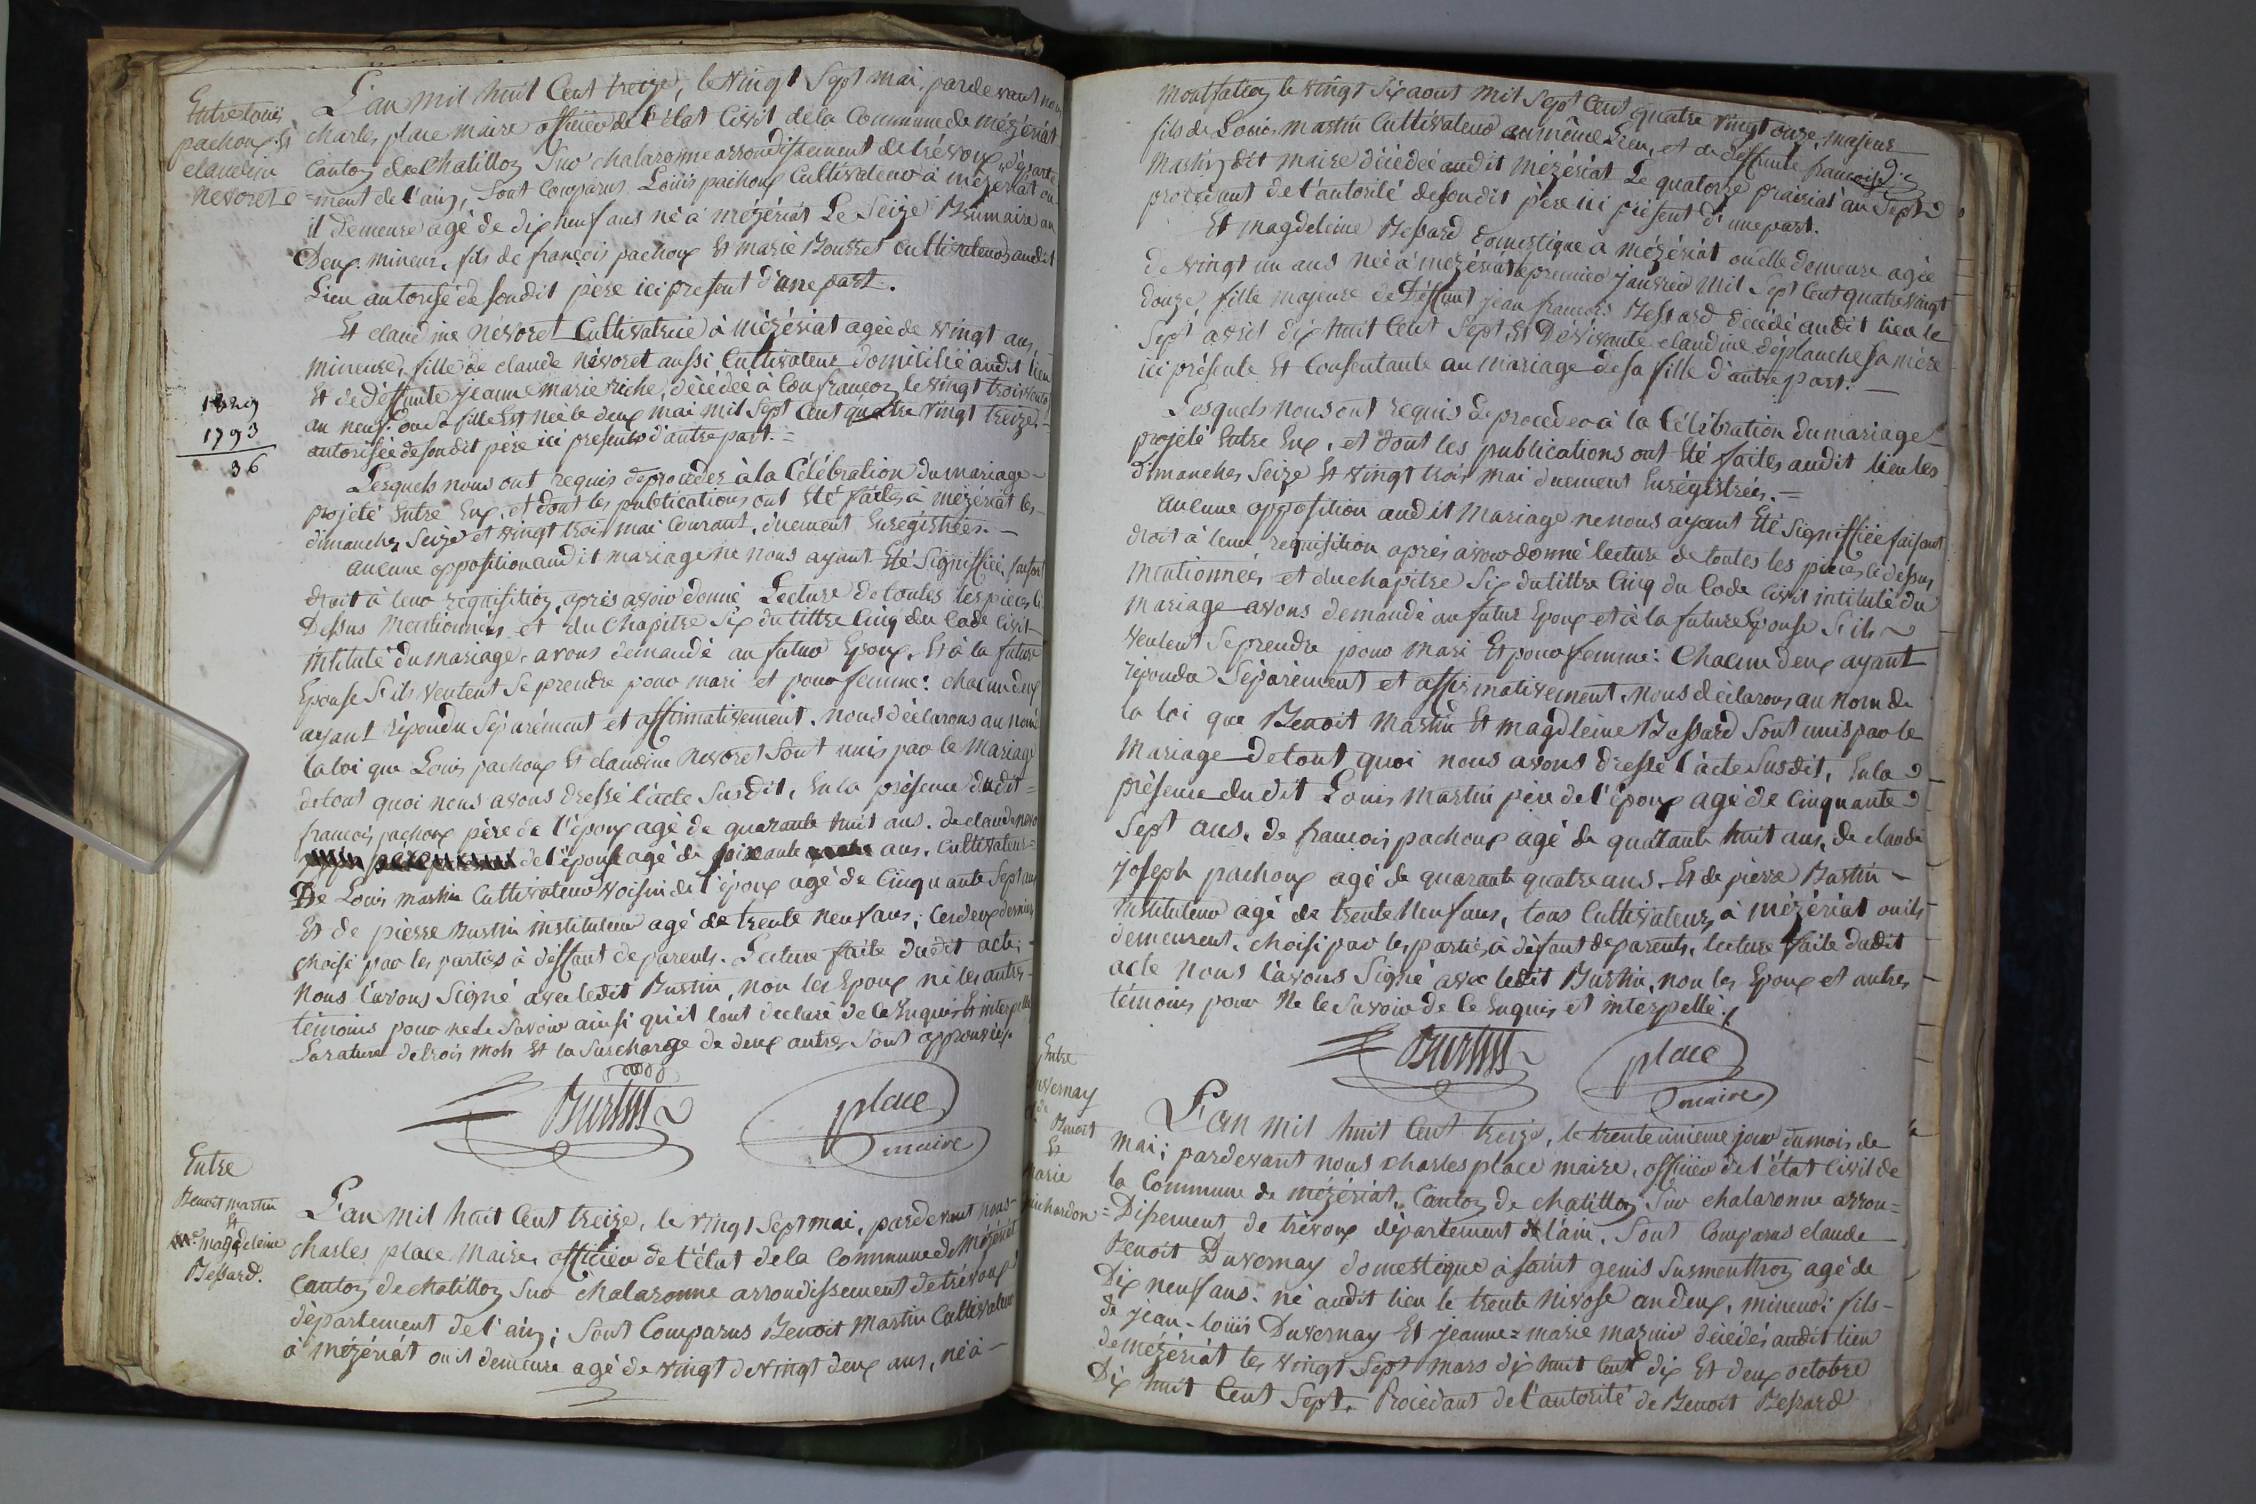 Entre Louis
pachoux Et
claudine
nevoret
L'an mil huit Cent treize, le vingt Sept mai, pardevant nous
charles place maire officier de l'état Civil de la Commune de mézériat
Canton de Chatillon Sur chalaronne arrondissement de trévoux, départe
=ment de l'ain, Sont Comparus Louis pachoux Cultivateur à mézériat ou
il demeure agé de dix neuf ans né à mézériat Le Seize Brumaire an
Deux. mineur, fils de françois pachoux Et marie Bousset cultivateurs audit
Lieu autorisé de sondit père ici présent d'une part.
Et claudine Névoret Cultivatrice à mézériat agée de vingt ans,
mineure, fille de claude Névoret aussi Cultivateur domicilié audit lieu
Et de déffunte jeanne marie riche, décédée à Confrançon le vingt trois
an neuf. fille Est née le deux mai mil Sept Cent quatre vingt treize
autorisée de sondit père ici présent d'autre part. =
1829
1793
36
Lesquels nous ont requis de procéder à la Célébration du mariage
projeté Entre Eux, et dont les publications ont Eté faites à mézériat les
dimanches Seize et vingt trois mai Courant, duement Enregistrées. —
aucune opposition audit mariage ne nous ayant Eté Signiffiée, faisant
droit à leur requisition, après avoir donné Lecture de toutes les pièces ci
Dessus Mentionnées et du Chapitre Six du tittre Cinq du Code Civil
intitulé du mariage, avons demandé au futur Epoux, Et à la future
Epouse S'ils veulent Se prendre pour mari et pour femme: chacun d'eux
ayant répondu Séparément et affirmativement, nous déclarons au nom de
la loi que Louis pachoux Et claudine Nevoret Sont unis par le mariage
de tout quoi nous avons dressé l'acte Susdit, En la présence dudit =
françois pachoux père de l'époux agé de quarante huit ans, de claude nevoret
de l'épouse agé de soixante ans, Cultivateurs
De Louis martin Cultivateur voisin de l'époux agé de Cinquante Sept ans
Et de pierre Burtin instituteur agé de trente neuf ans, Ces deux derniers
choisi par les parties à déffaut de parents. Lecture faite dudit acte,
Nous l'avons Signé avec ledit Burtin, non les Epoux ni les autres
témoins pour ne Le Savoir ainsi qu'il l'ont déclaré de ce Enquis Et interpellé
La rature de trois mots Et la Surcharge de deux autres Sont approuvés.
Burtin
place
maire
Entre
Benoit martin
Et
magdeleine
Bessard.
L'an mil huit Cent treize, le vingt Sept mai, pardevant nous
charles place maire officier de l'état de la Commune de Mézériat
Canton de chatillon Sur chalaronne arrondissement de trévoux
département de l'ain; Sont Comparus Benoit Martin Cultivateur
à mézériat ou il demeure agé de vingt de vingt deux ans, né à —
montfalcon le vingt Six aout mil Sept Cent quatre vingt onze, majeur
fils de Louis martin Cultivateur au même Lieu, et de deffunte françoise
Martin dit maire décédée audit mézériat Le quatorze prairial an Sept
procédant de l'autorité de sondit père ici présent d'une part.
Et magdeleine Bessard domestique à mézériat ou elle demeure agée
de vingt un ans née à mézériat le premier janvier mil Sept Cent quatre vingt
douze, fille majeure de Déffunt jean françois Bessard décédé audit lieu le
Sept avril dix huit Cent Sept, Et De vivante claudine déplanche Sa mère
ici présente Et Consentante au mariage de sa fille d'autre part. —
Lesquels nous ont requis de procéder à la Célébration du mariage
projeté Entre Eux, et dont les publications ont Eté faites audit lieu les
dimanches Seize Et vingt trois mai duement Enrégistrées. =
aucune opposition audit Mariage ne nous ayant Eté Signiffiée faisant
droit à leur requisition après avoir donné lecture de toutes les pièces ci dessus
Mentionnées et du chapitre Six du tittre Cinq du Code Civil intitulé du
Mariage avons demandé au futur Epoux et à la future Epouse S'ils
veulent Se prendre pour Mari Et pour femme: Chacun d'eux ayant
répondu Séparément et affirmativement, nous déclarons au Nom de
la loi que Benoit Martin Et magdeleine Bessard Sont unis par le
Mariage de tout quoi nous avons dressé l'acte Susdit, En la
présence dudit Louis Martin père de l'époux agé de Cinquante
Sept ans, de françois pachoux agé de quarante huit ans, de claude
joseph pachoux agé de quarante quatre ans, Et de pierre Burtin
instituteur agé de trente Neuf ans, tous Cultivateurs à mézériat ou ils
demeurent, choisi par les parties à défaut de parents, lecture faite dudit
acte Nous l'avons Signé avec ledit Burtin, non les Epoux et autres
témoins pour Ne le Savoir de Ce Enquis et interpellé.
Burtin
place
maire
Entre
Duvernay
Benoit
Et
Marie
L'an mil huit Cent treize, le trente unieme jour du mois de
mai; pardevant nous charles place maire, officier de l'état Civil de
la Commune de mézériat, Canton de chatillon Sur chalaronne arron=
=Dissement de trévoux département de l'ain, Sont Comparus claude
Benoit Duvernay domestique à Saint genis Sur menthon agé de
Dix neuf ans. né audit lieu le trente Nivose an deux, mineur: fils
de jean-louis Duvernay Et jeanne=marie décédés audit lieu
de mézériat les vingt Sept mars dix huit Cent dix Et deux octobre
Dix huit Cent Sept. Procédant de l'autorité de Benoit Bessard